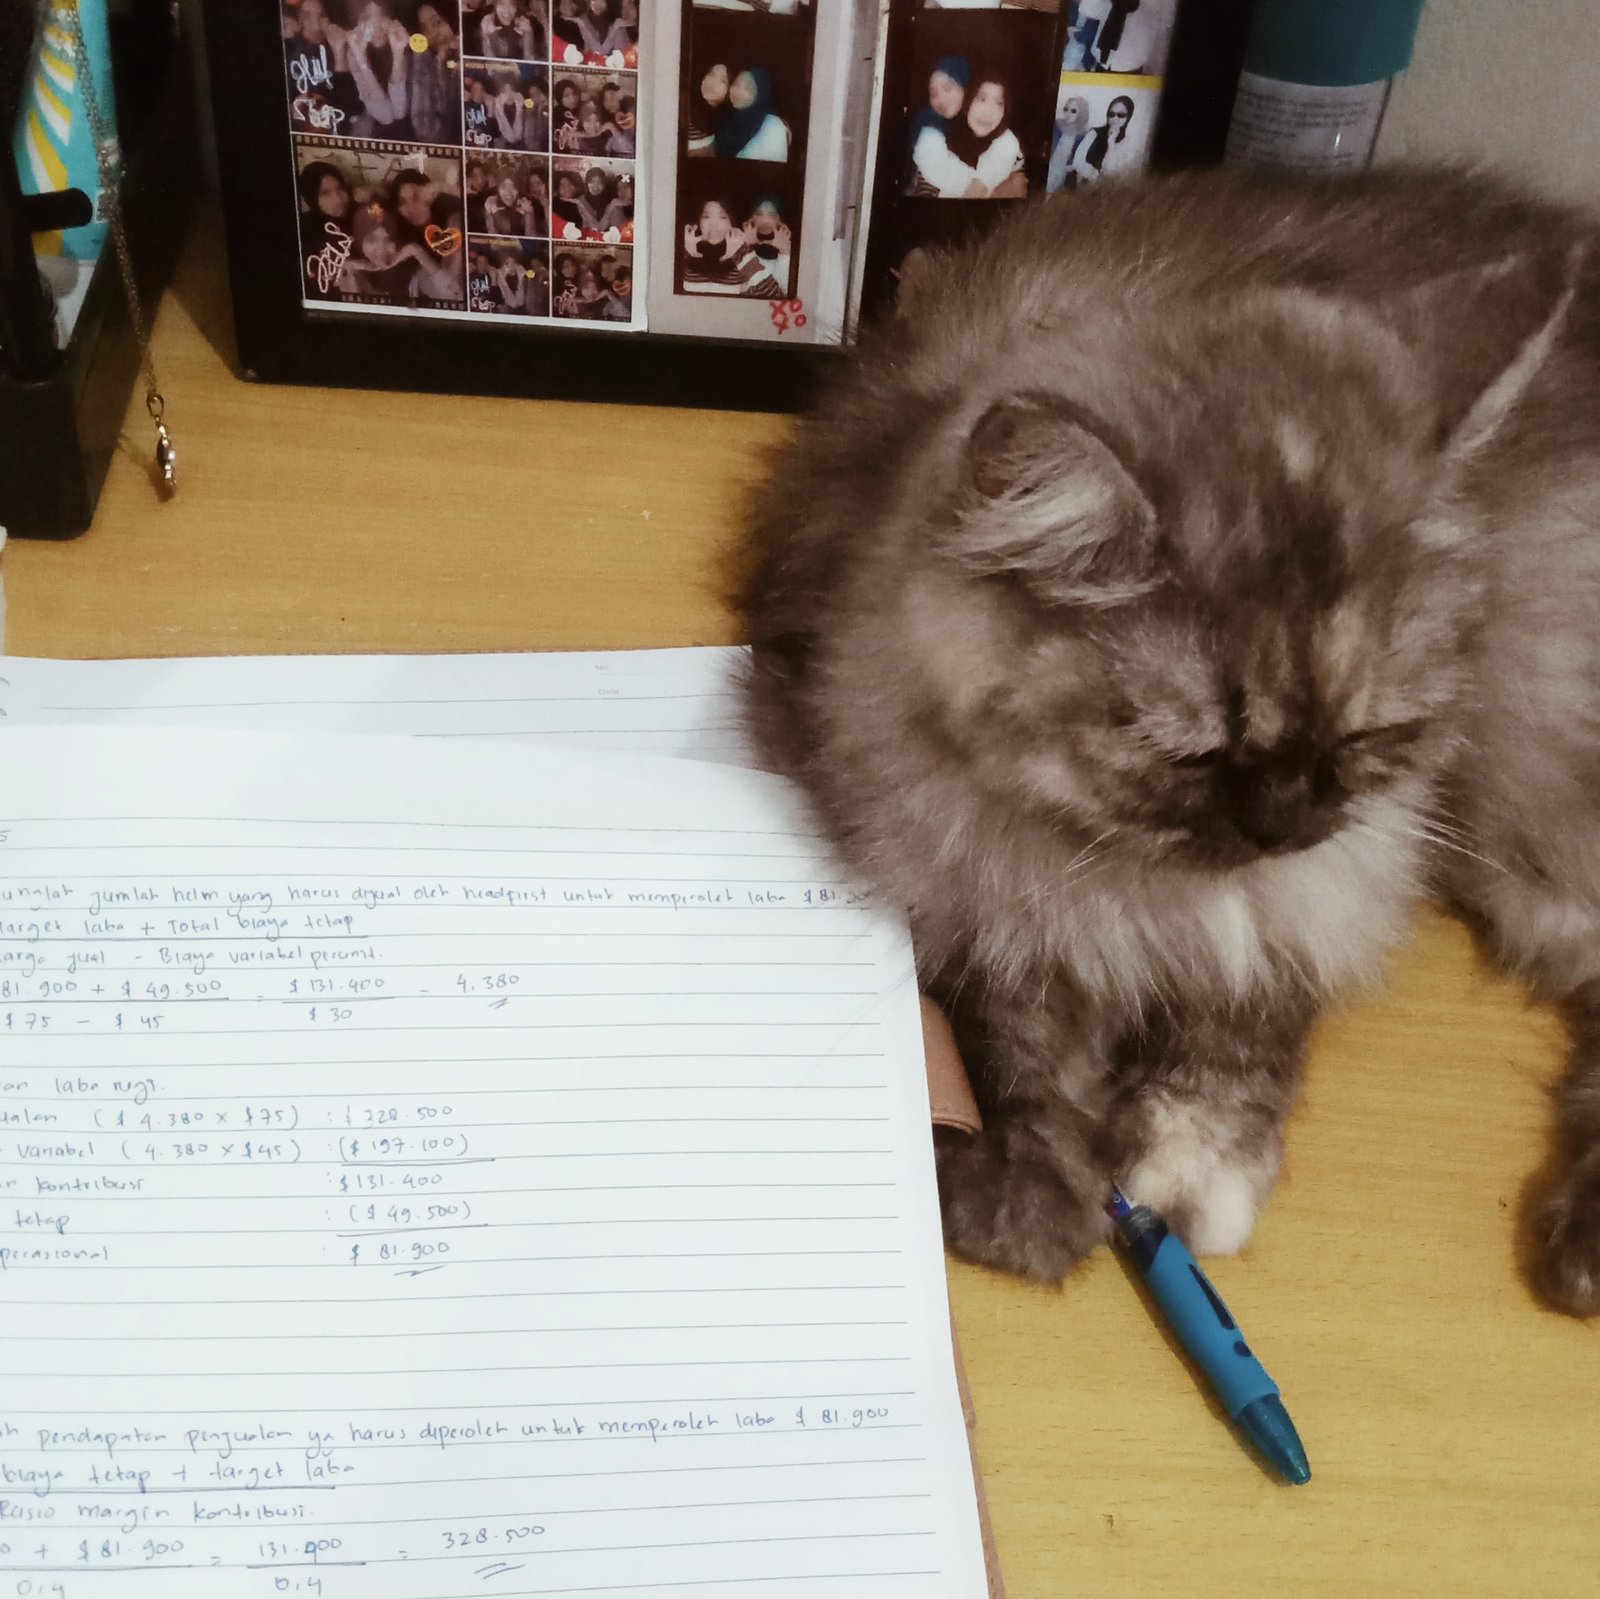 No.
Date
jumlah helm yang harus dijual oleh headfirst untuk memperoleh laba $ 81.900
target laba + Total biaya tetap
jual - Biaya variabel perunit.
81.900 + $ 49.500 = $ 131.400 = 4.380
$ 75 - $ 45 $ 30
laba rugi.
( $ 4.380 x $75) : $ 328.500
variabel ( 4.380 x $45) : ($ 197.100)
kontribusi : $131.400
tetap : ( $ 49.500)
: $ 81.900
pendapatan penjualan yg harus diperoleh untuk memperoleh laba $ 81.900
biaya tetap + target laba
Rasio margin kontribusi.
+ $ 81.900 = 131.400 = 328.500
0,4 0,4
XO
XO